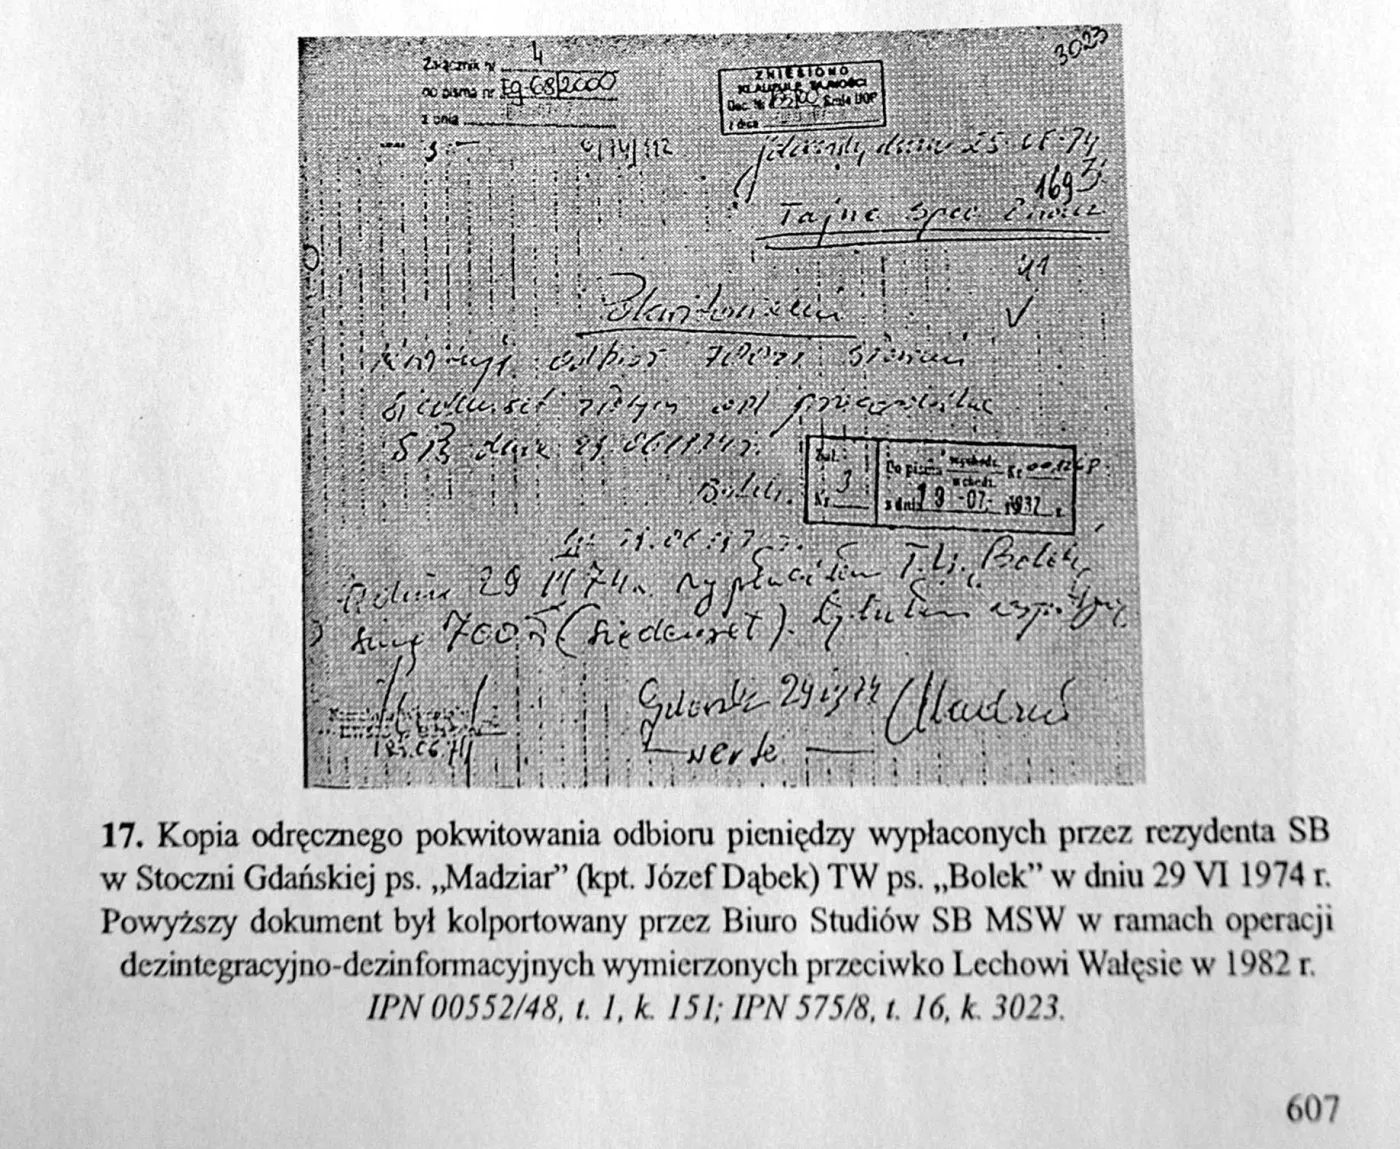 3023
Załącznik nr 4
do pisma nr Eg-68/2000
z dnia
ZNIESIONO
KLAUZULĘ TAJNOŚCI
z dnia
Gdańsk, dnia
1693
Tajne spec. znacz
41
Pokwitowanie
Kwituję odbiór 700 zł słownie
siedemset złotych od
SB dnia 29.06.1974r.
Zał. 3 Do pisma wychodz. Nr
Nr wchodz.
z dnia 19-07-
Bolek.
W dniu 29 VI 74r. wypłaciłem T.W. "Bolek"
sumę 700 zł (siedemset). tytułem
Gdańsk 29 VI 74 Madziar
verte
17. Kopia odręcznego pokwitowania odbioru pieniędzy wypłaconych przez rezydenta SB
w Stoczni Gdańskiej ps. „Madziar” (kpt. Józef Dąbek) TW ps. „Bolek” w dniu 29 VI 1974 r.
Powyższy dokument był kolportowany przez Biuro Studiów SB MSW w ramach operacji
dezintegracyjno-dezinformacyjnych wymierzonych przeciwko Lechowi Wałęsie w 1982 r.
IPN 00552/48, t. 1, k. 151; IPN 575/8, t. 16, k. 3023.
607